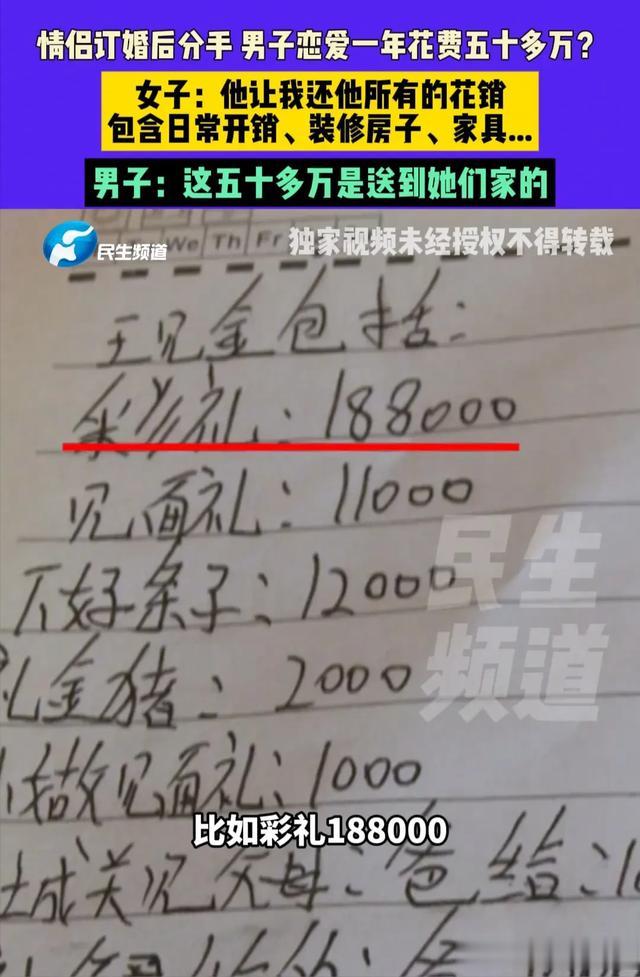 情侣订婚后分手 男子恋爱一年花费五十多万?
女子：他让我还他所有的花销
包含日常开销、装修房子、家具...
男子：这五十多万是送到她们家的
民生频道
独家视频未经授权不得转载
We Th Fr
现金包括：
彩礼：188000
见面礼：11000
好条子：12000
民生
频道
金猪：2000
见面礼：1000
比如彩礼188000
城关见父母：爸给：